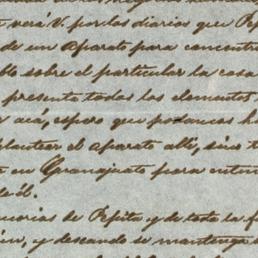 verá V. por los diarios que Pep
de un Aparato para
blo sobre el particular la casa
presenta todos los elementos
acá, espero que podamos h
plantear el aparato allí, sino t
en Guanajuato para
de él.
morias de Pepito y de toda la f
ún, y deseando se mantenga b